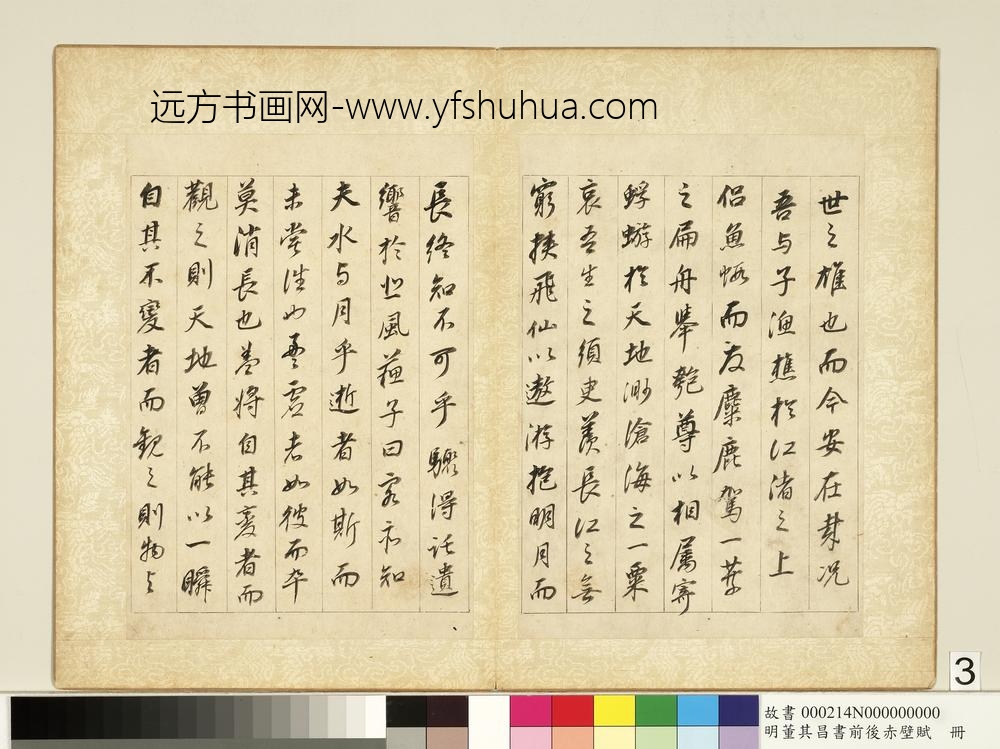 远方书画网-www.yfshuhua.com
世之雄也而今安在哉况
吾与子渔樵於江渚之上
侣魚蝦而友麋鹿駕一葉
之扁舟舉匏尊以相属寄
蜉蝣於天地渺滄海之一粟
哀吾生之須臾羨長江之無
窮挟飛仙以遨游抱明月而
長終知不可乎驟得託遺
響於悲風蘇子曰客亦知
夫水与月乎逝者如斯而
未嘗往也盈虚者如彼而卒
莫消長也蓋将自其變者而
觀之則天地曾不能以一瞬
自其不變者而觀之則物与
3
故書 000214N000000000
明董其昌書前後赤壁賦 冊